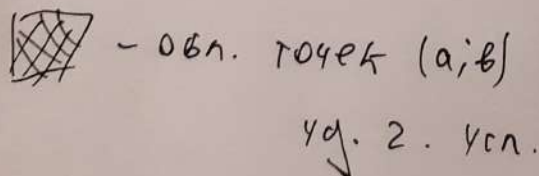 - обл. точек (a;b)
уд. 2. усл.